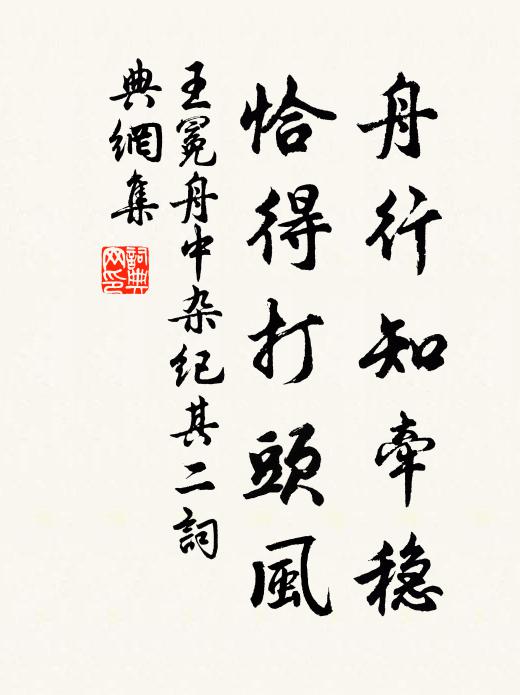 舟行知牽穏
恰得打頭風
王冕舟中杂纪其二詞
典網集
詞典
网印